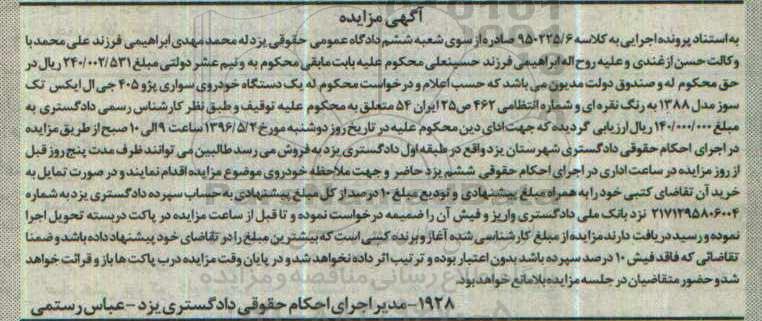 آگهی مزایده
به استناد پرونده اجرایی به کلاسه ۹۵۰۲۲۵/۶ صادره از سوی شعبه ششم دادگاه عمومی حقوقی یزد له محمد مهدی ابراهیمی فرزند علی محمد با
وکالت حسن ازغندی و علیه روح اله ابراهیمی فرزند حسینعلی محکوم علیه بابت مابقی محکوم به و نیم عشر دولتی مبلغ ۲۴۰/۰۰۲/۵۳۱ ریال در
حق محکوم له و صندوق دولت مدیون می باشد که حسب اعلام و درخواست محکوم له یک دستگاه خودروی سواری پژو ۴۰۵ جی ال ایکس تک
سوز مدل ۱۳۸۸ به رنگ نقره ای و شماره انتظامی ۴۶۲ ص ۲۵ ایران ۵۴ متعلق به محکوم علیه توقیف و طبق نظر کارشناس رسمی دادگستری به
مبلغ ۱۴۰/۰۰۰/۰۰۰ ریال ارزیابی گردیده که جهت ادای دین محکوم علیه در تاریخ روز دوشنبه مورخ ۱۳۹۶/۵/۲ ساعت ۹ الی ۱۰ صبح از طریق مزایده
در اجرای احکام حقوقی دادگستری شهرستان یزد واقع در طبقه اول دادگستری یزد به فروش می رسد طالبین می توانند ظرف مدت پنج روز قبل
از روز مزایده در ساعت اداری در اجرای احکام حقوقی ششم یزد حاضر و جهت ملاحظه خودروی موضوع مزایده اقدام نمایند و در صورت تمایل به
خرید آن تقاضای کتبی خود را به همراه مبلغ پیشنهادی و تودیع مبلغ ۱۰ درصد از کل مبلغ پیشنهادی به حساب سپرده دادگستری یزد به شماره
۲۱۷۱۲۹۵۸۰۶۰۰۴ نزد بانک ملی دادگستری واریز و فیش آن را ضمیمه درخواست نموده و تا قبل از ساعت مزایده در پاکت دربسته تحویل اجرا
نموده و رسید دریافت دارند مزایده از مبلغ کارشناسی شده آغاز و برنده کسی است که بیشترین مبلغ را در تقاضای خود پیشنهاد داده باشد و ضمنا
تقاضائی که فاقد فیش ۱۰ درصد سپرده باشد بدون اعتبار بوده و ترتیب اثر داده نخواهد شد و در پایان وقت مزایده درب پاکت ها باز و قرائت خواهد
شد و حضور متقاضیان در جلسه مزایده بلامانع خواهد بود.
۱۹۲۸- مدیر اجرای احکام حقوقی دادگستری یزد - عباس رستمی